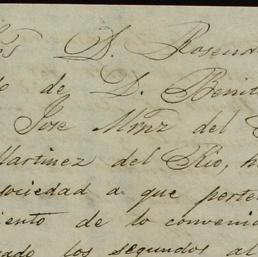 D. Rosend
de D. Benit
Jose Mrnz del
Martinez del Rio, h
sociedad a que perte
iento de lo conveni
los segundos al